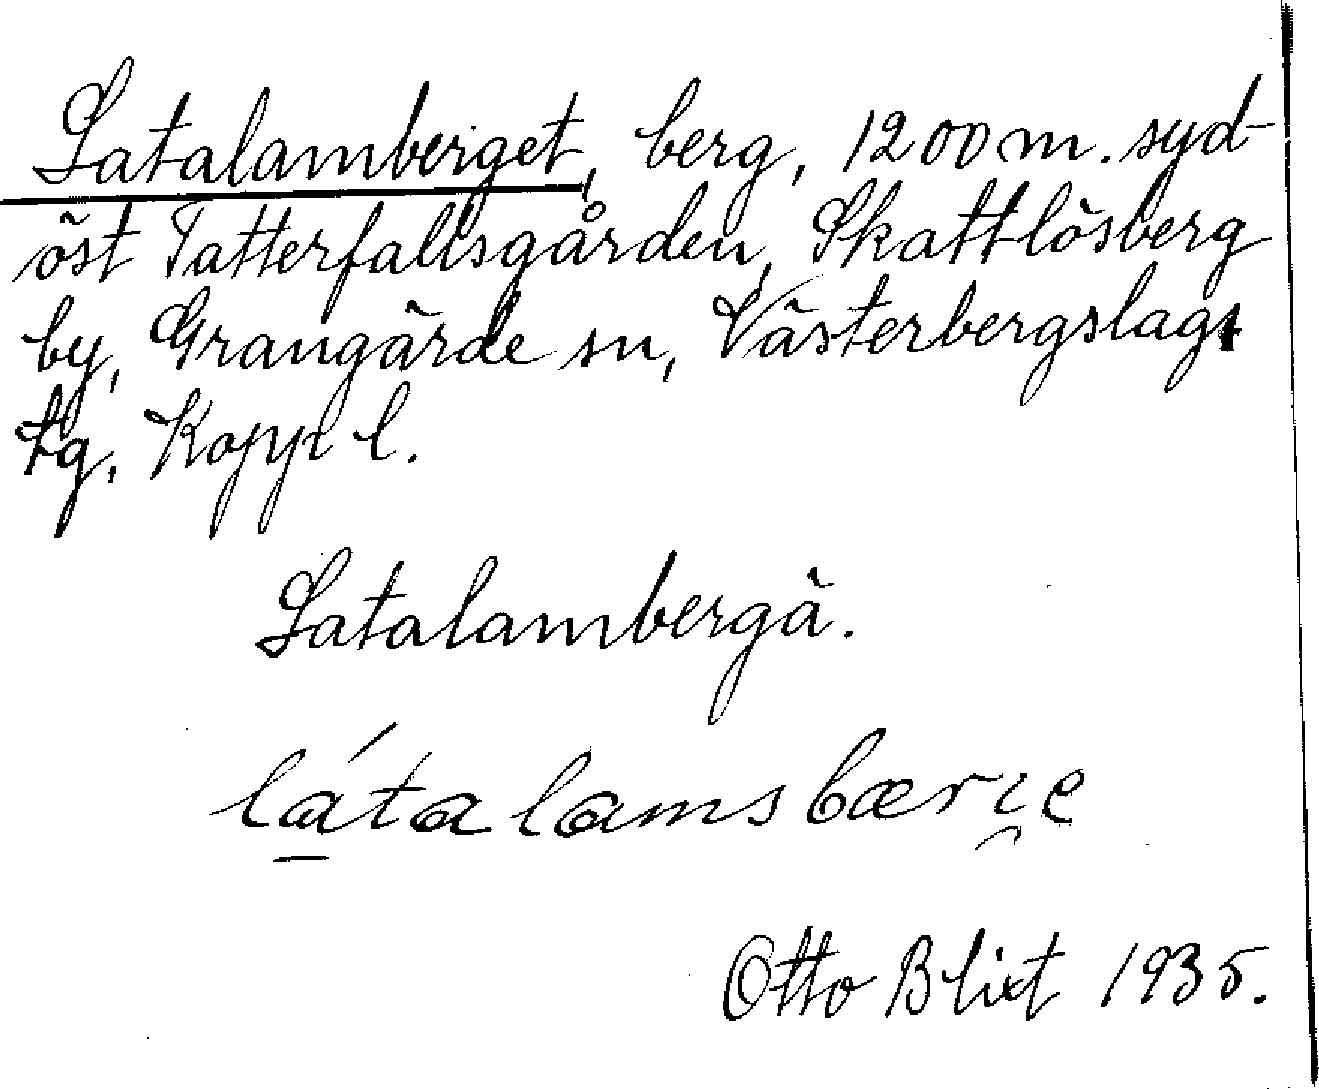 Latalamberget, berg, 1200 m. syd-
öst Tatterfallsgården, Skattlösberg
by, Grangärde sn, Västerbergslags
tg. Kopp l.
Latalambergä.
látalamsbærje
Otto Blixt 1935.